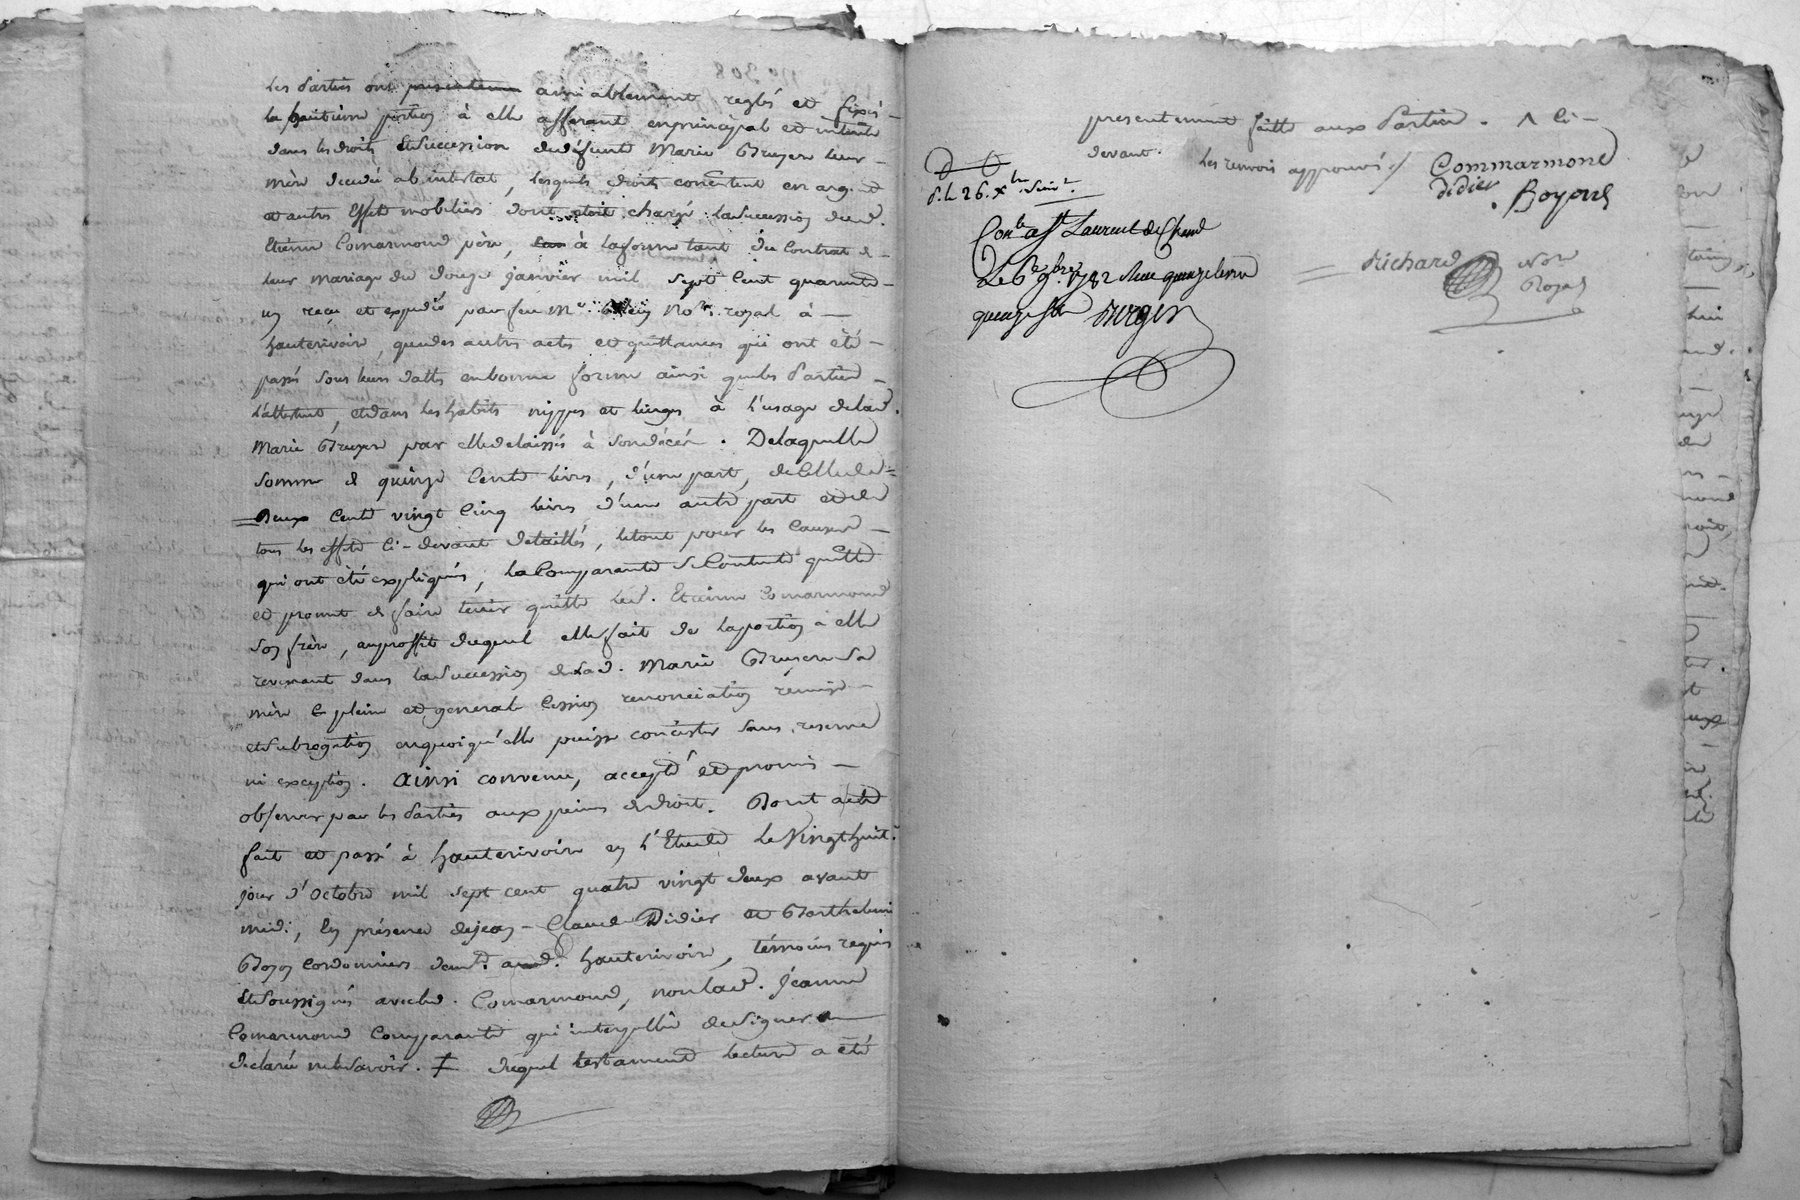 les parties ont amiablement reglés et fixés -
la huitieme portion à elle afferant en principal et interets
dans les droits et succession de défunte Marie Bruyere leur -
mère decedée ab intestat, lesquels droits consistent en arg. et
et autres effets mobiliers dont étoit chargé la succession dud.
Etienne Comarmond père, à la forme tant du Contrat de -
leur mariage du douze janvier mil sept cent quarante -
un reçu et expedié par feu Me No.re royal à -
hauterivoire, que des autres actes et quittances qui ont été -
passés sous leurs dattes en bonne forme ainsi que les Parties -
l'attestent, et dans les habits nippes et linges à l'usage de lad.
Marie Bruyere par elle delaissés à son décès. De laquelle
somme de quinze cents livres, d'une part, de celle de =
deux cents vingt cinq livres d'une autre part et de
tous les effets ci-devant detaillés, le tout pour les causes -
qui ont été expliqués, la Comparante se contente quitte
et promet de faire tenir quitte led. Etienne Comarmond
son frère, au proffit duquel elle fait de la portion à elle
revenant dans la succession de lad. Marie Bruyere sa
mère le plein et general cession renonciation remise -
et subrogation en quoi qu'elle puisse consister sans reserve
ni exception. Ainsi convenu, accepté et promis -
observer par les Parties aux peines de droit. Dont acte
fait et passé à hauterivoire en l'Etude le Vingt huit.e
jour d'octobre mil sept cent quatre vingt deux avant
midi, en présence de jean-Claude Didier et Barthelemi
Boyon cordonniers dem.t aud. hauterivoire, témoins requis
et soussignés avec led. Comarmond, non lad. Jeanne
Comarmond comparante qui interpellée de signer a
declaré ne le savoir. ‡ duquel testament lecture a été
presentement faitte aux Parties. ^ ci -
devant. les renvois approuvés ./ Commarmond
didier Boyons
Richard Not.
Royal
S. L. 26. Xbre suiv.t
Con.lé a St Laurent de Cham.
Le 6e 9bre 1782 Reçu quinze livres
quinze s.